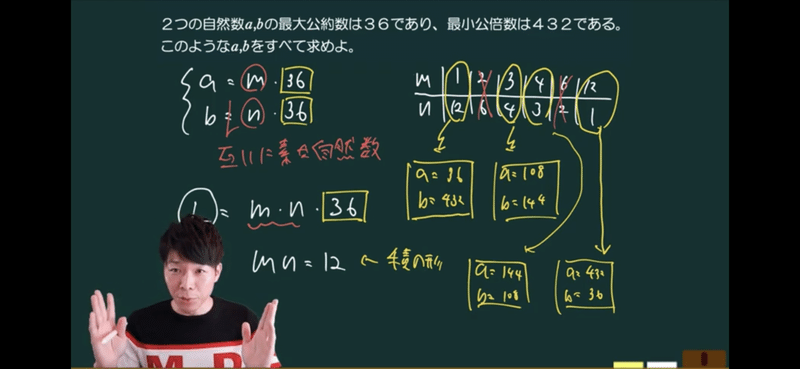 2つの自然数a,bの最大公約数は36であり、最小公倍数は432である。
このようなa,bをすべて求めよ。
a = m · 36
b = n · 36
互いに素な自然数
L = m · n · 36
mn = 12 ← 積の形
m 1 2 3 4 6 12
n 12 6 4 3 2 1
a = 36
b = 432
a = 108
b = 144
a = 144
b = 108
a = 432
b = 36